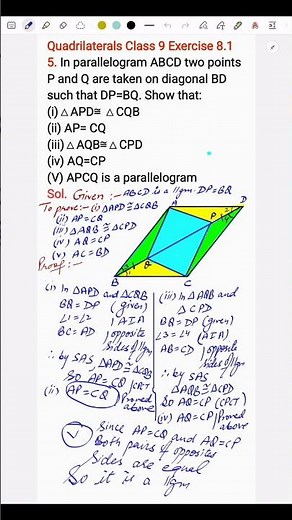 Quadrilaterals Class 9 Exercise 8.1
5. In parallelogram ABCD two points
P and Q are taken on diagonal BD
such that DP=BQ. Show that:
(i) △APD≅ △CQB
(ii) AP= CQ
(iii) △AQB≅ △CPD
(iv) AQ=CP
(V) APCQ is a parallelogram
Sol. Given :- ABCD is a ||gm. DP=BQ
To prove:- (i) △APD≅△CQB
(ii) AP=CQ
(iii) △AQB≅△CPD
(iv) AQ=CP
(v) AC=BD
Proof:-
A D
P
Q
B C
(i) In △APD and △CQB
BQ=DP (given)
∠1=∠2 | AIA
BC=AD | opposite
sides of ||gm
∴ by SAS, △APD≅△CQB
So AP=CQ (CPCT
(ii) AP=CQ | Proved
above
(iii) In △AQB and
△CPD
BQ=DP (given)
∠3=∠4 (AIA)
AB=CD | opposite
sides of ||gm
∴ by SAS
△AQB≅△CPD
So AQ=CP (CPCT)
(iv) AQ=CP | Proved
above
(V) Since AP=CQ and AQ=CP
Both pairs of opposites
sides are equal
So it is a ||gm